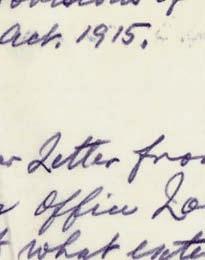 Act. 1915.
Letter from
Office Lo
what exte